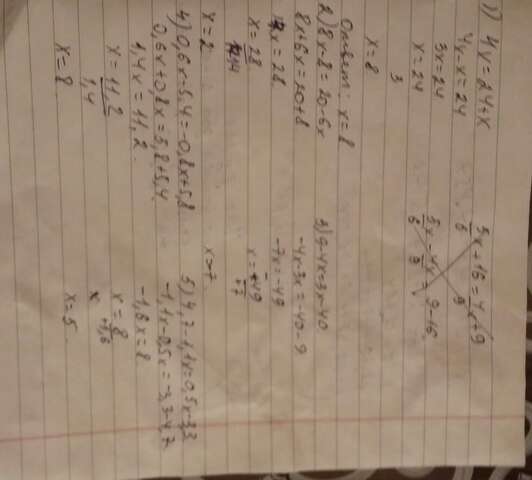 1) 4x = 24 + x
4x - x = 24
3x = 24
x = 24
3
x = 8
Ответ: x = 8
2) 8x - 8 = 20 - 6x
8x + 6x = 20 + 8
x = 28
x = 28
14
x = 2
4) 0,6x - 5,4 = -0,8x + 5,8
0,6x + 0,8x = 5,8 + 5,4
1,4x = 11,2
x = 11,2
1,4
x = 8
5x + 16 = 4x + 9
6 9
5x - 4x = 9 - 16
6 9
3) 9 - 4x = 3x - 40
-4x - 3x = -40 - 9
-7x = -49
x = -49
x = 7
5) 4,7 - 1,1x = 0,5x - 3,3
-1,1x - 0,5x = -3,3 - 4,7
-1,6x = 8
x = 8
x = 5